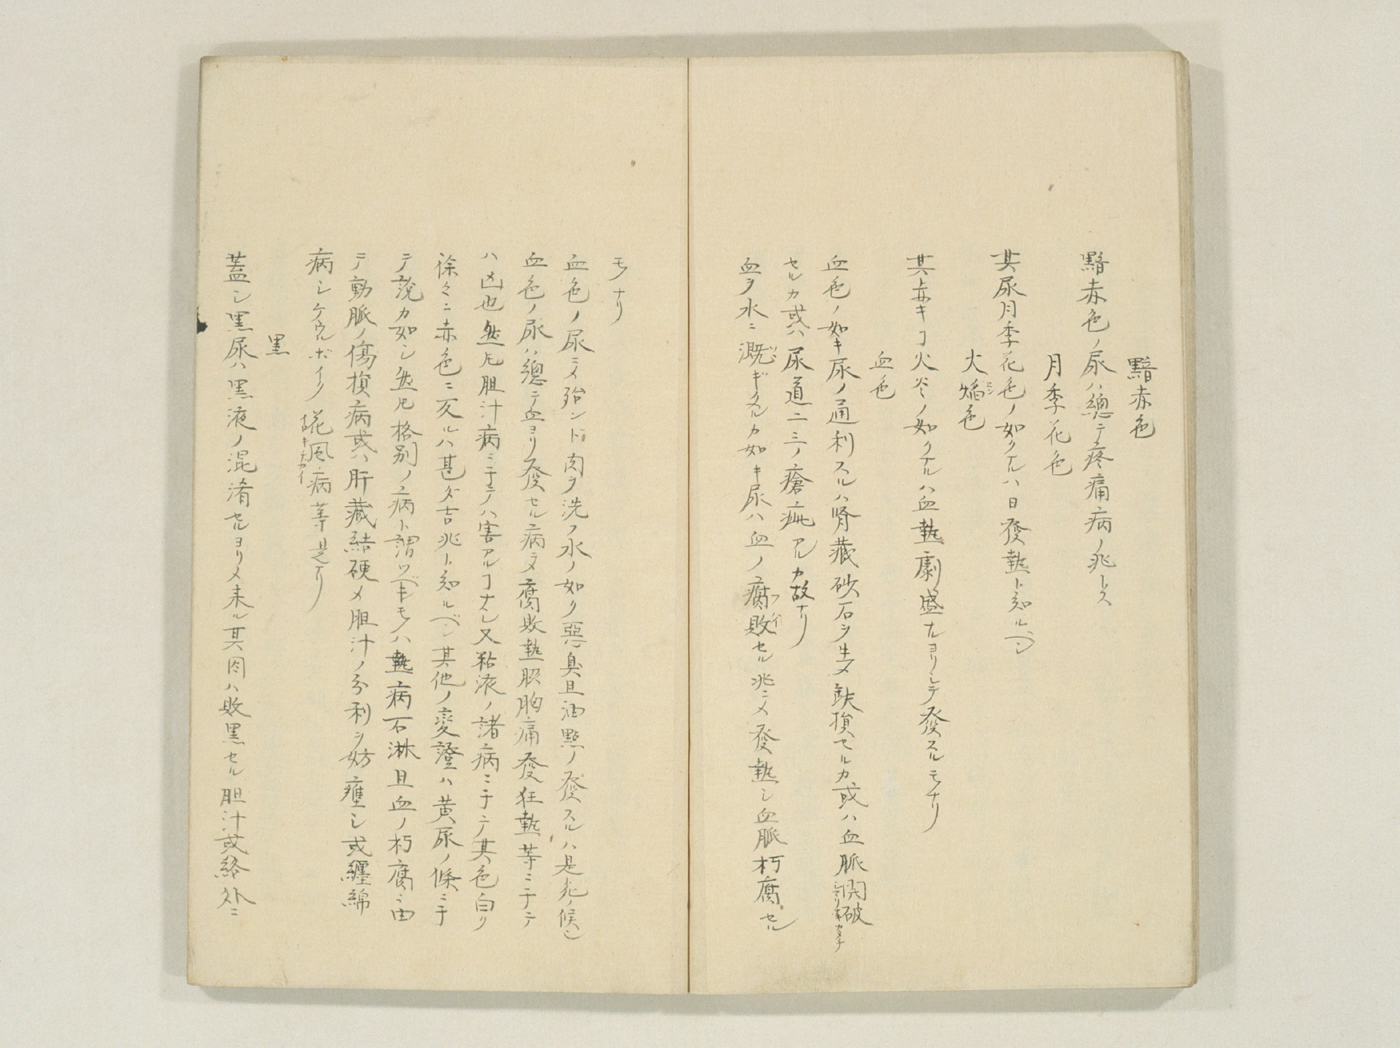 黯赤色
黯赤色ノ尿ハ總テ疼痛病ノ兆トス
月季花色
其尿月季花色ノ如クナルハ日發熱ト知ルベシ
火焔色
其赤キヿ火炎ノ如クナルハ血熱劇盛ナルヨリシテ發スルモナリ
血色
血色ノ如キ尿ノ通利スルハ腎藏砂石ヲ生〆缺損セルカ或ハ血脈開破
セルカ或ハ尿道ニ二三ノ瘡疵アルカ故ナリ
血ヲ水ニ漑ギタルカ如キ尿ハ血ノ腐敗セル兆ニ〆發熱シ血脈朽腐セル
モノナリ
血色ノ尿ニ〆殆ンド肉ヲ洗フ水ノ如ク惡臭且油點ノ發スルハ是死ノ候シ
血色ノ尿ハ總テ血ヨリ發セル病ニ〆腐敗熱胸痛發狂熱等ニ于テ
ハ凶也然𪜈胆汁病ニ于テハ害アルヿナシ又粘液ノ諸病ニ于テ其色白ク
徐々ニ赤色ニ变ルハ甚ダ吉兆ト知ルベシ其他ノ変證ハ黄尿ノ條ニ于
テ説カ如シ然𪜈格別ノ病ト謂ツベキモノハ熱病石淋且血ノ朽腐ニ由
テ動脈ノ傷損病或ハ肝藏結硬〆胆汁ノ分利ヲ妨壅シ或纒綿
病シケウルボイク 風病等是ナリ
黒
蓋シ黒尿ハ黒液ノ混淆セルヨリ〆来ル其因ハ敗黒セル胆汁或絡外ニ